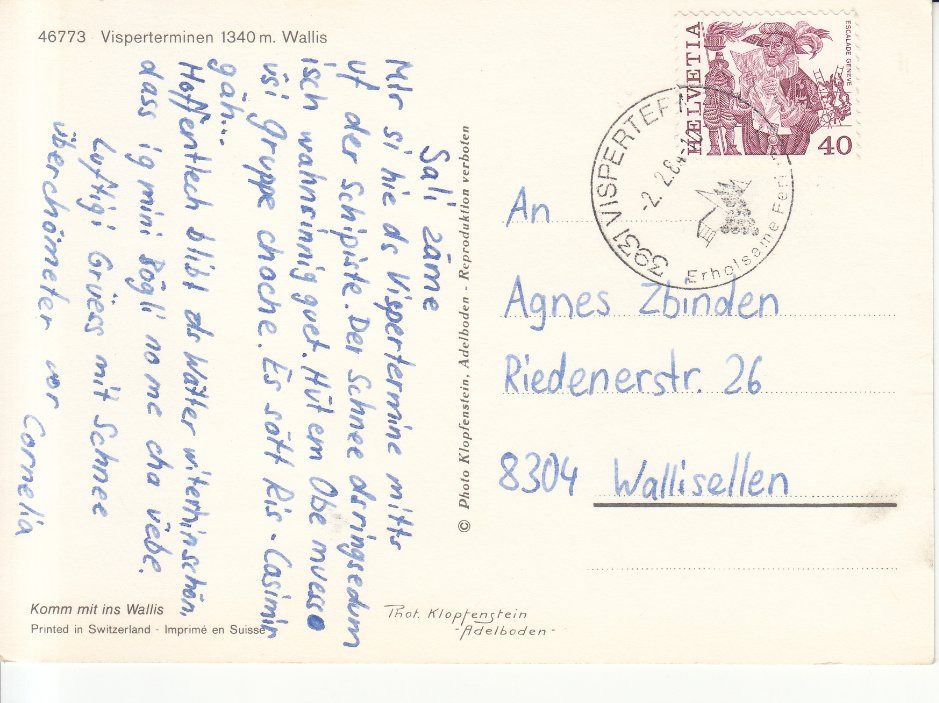 46773 Visperterminen 1340 m. Wallis
Sali zäme
Mir si hie ds Vispertermine mitts
uf der Schipiste. Der Schnee dsringsedum
isch wahnsinnig guet. Hüt em Obe muess
üsi Gruppe choche. Es sött Ris-Casimir
gäh...
Hoffentlech blibt ds Wätter witerhin schön,
dass ig mini Bögli no me cha üebe.
Luftigi Grüess mit Schnee
überchömeter vor Cornelia
© Photo Klopfenstein, Adelboden - Reproduktion verboten
HELVETIA
ESCALADE GENÈVE
40
3931 VISPERTERM
-2.2.8
Erholsame Feri
An
Agnes Zbinden
Riedenerstr. 26
8304 Wallisellen
Komm mit ins Wallis
Printed in Switzerland - Imprimé en Suisse
Phot. Klopfenstein
-Adelboden-